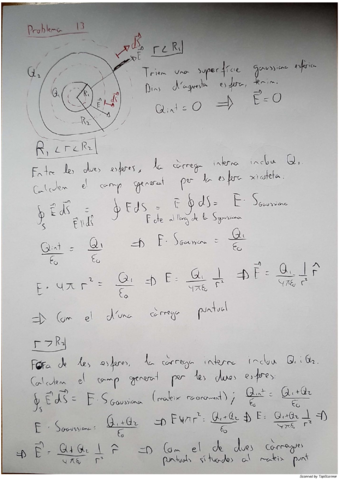 Problema 17
r < R₁
dS E
Q₂ Q₁ R₁ R₂
Triem una superfície gaussiana esfèrica
Dins d'aquesta esfera,
Qint = 0 ⇒ E⃗ = 0
R₁ < r < R₂
Entre les dues esferes, la càrrega interna inclou Q₁
Calculem el camp generat per la esfera
∮s E⃗ dS⃗ = ∮ E dS = E ∮ dS = E · Sgaussiana
E⃗ ∥ dS⃗ E cte al llarg de la Sgaussiana
Qint/ε₀ = Q₁/ε₀ ⇒ E · Sgaussiana = Q₁/ε₀
E · 4πr² = Q₁/ε₀ ⇒ E = Q₁/4πε₀ 1/r² ⇒ E⃗ = Q₁/4πε₀ 1/r² r̂
⇒ Com el d'una càrrega puntual
r > R₂
Fora de les esferes, la càrrega interna inclou Q₁ i Q₂
Calculem el camp generat per les dues esferes:
∮s E⃗ dS⃗ = E Sgaussiana (mateix raonament); Qint/ε₀ = Q₁+Q₂/ε₀
E · Sgaussiana = Q₁+Q₂/ε₀ ⇒ E 4πr² = Q₁+Q₂/ε₀ ⇒ E = Q₁+Q₂/4πε₀ 1/r² ⇒
⇒ E⃗ = Q₁+Q₂/4πε₀ 1/r² r̂ ⇒ Com el de dues càrregues
puntuals situades al mateix punt
Scanned by TapScanner